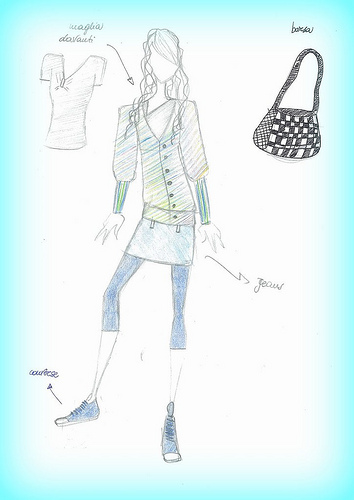 maglia
davanti
borsa
Jeans
converse